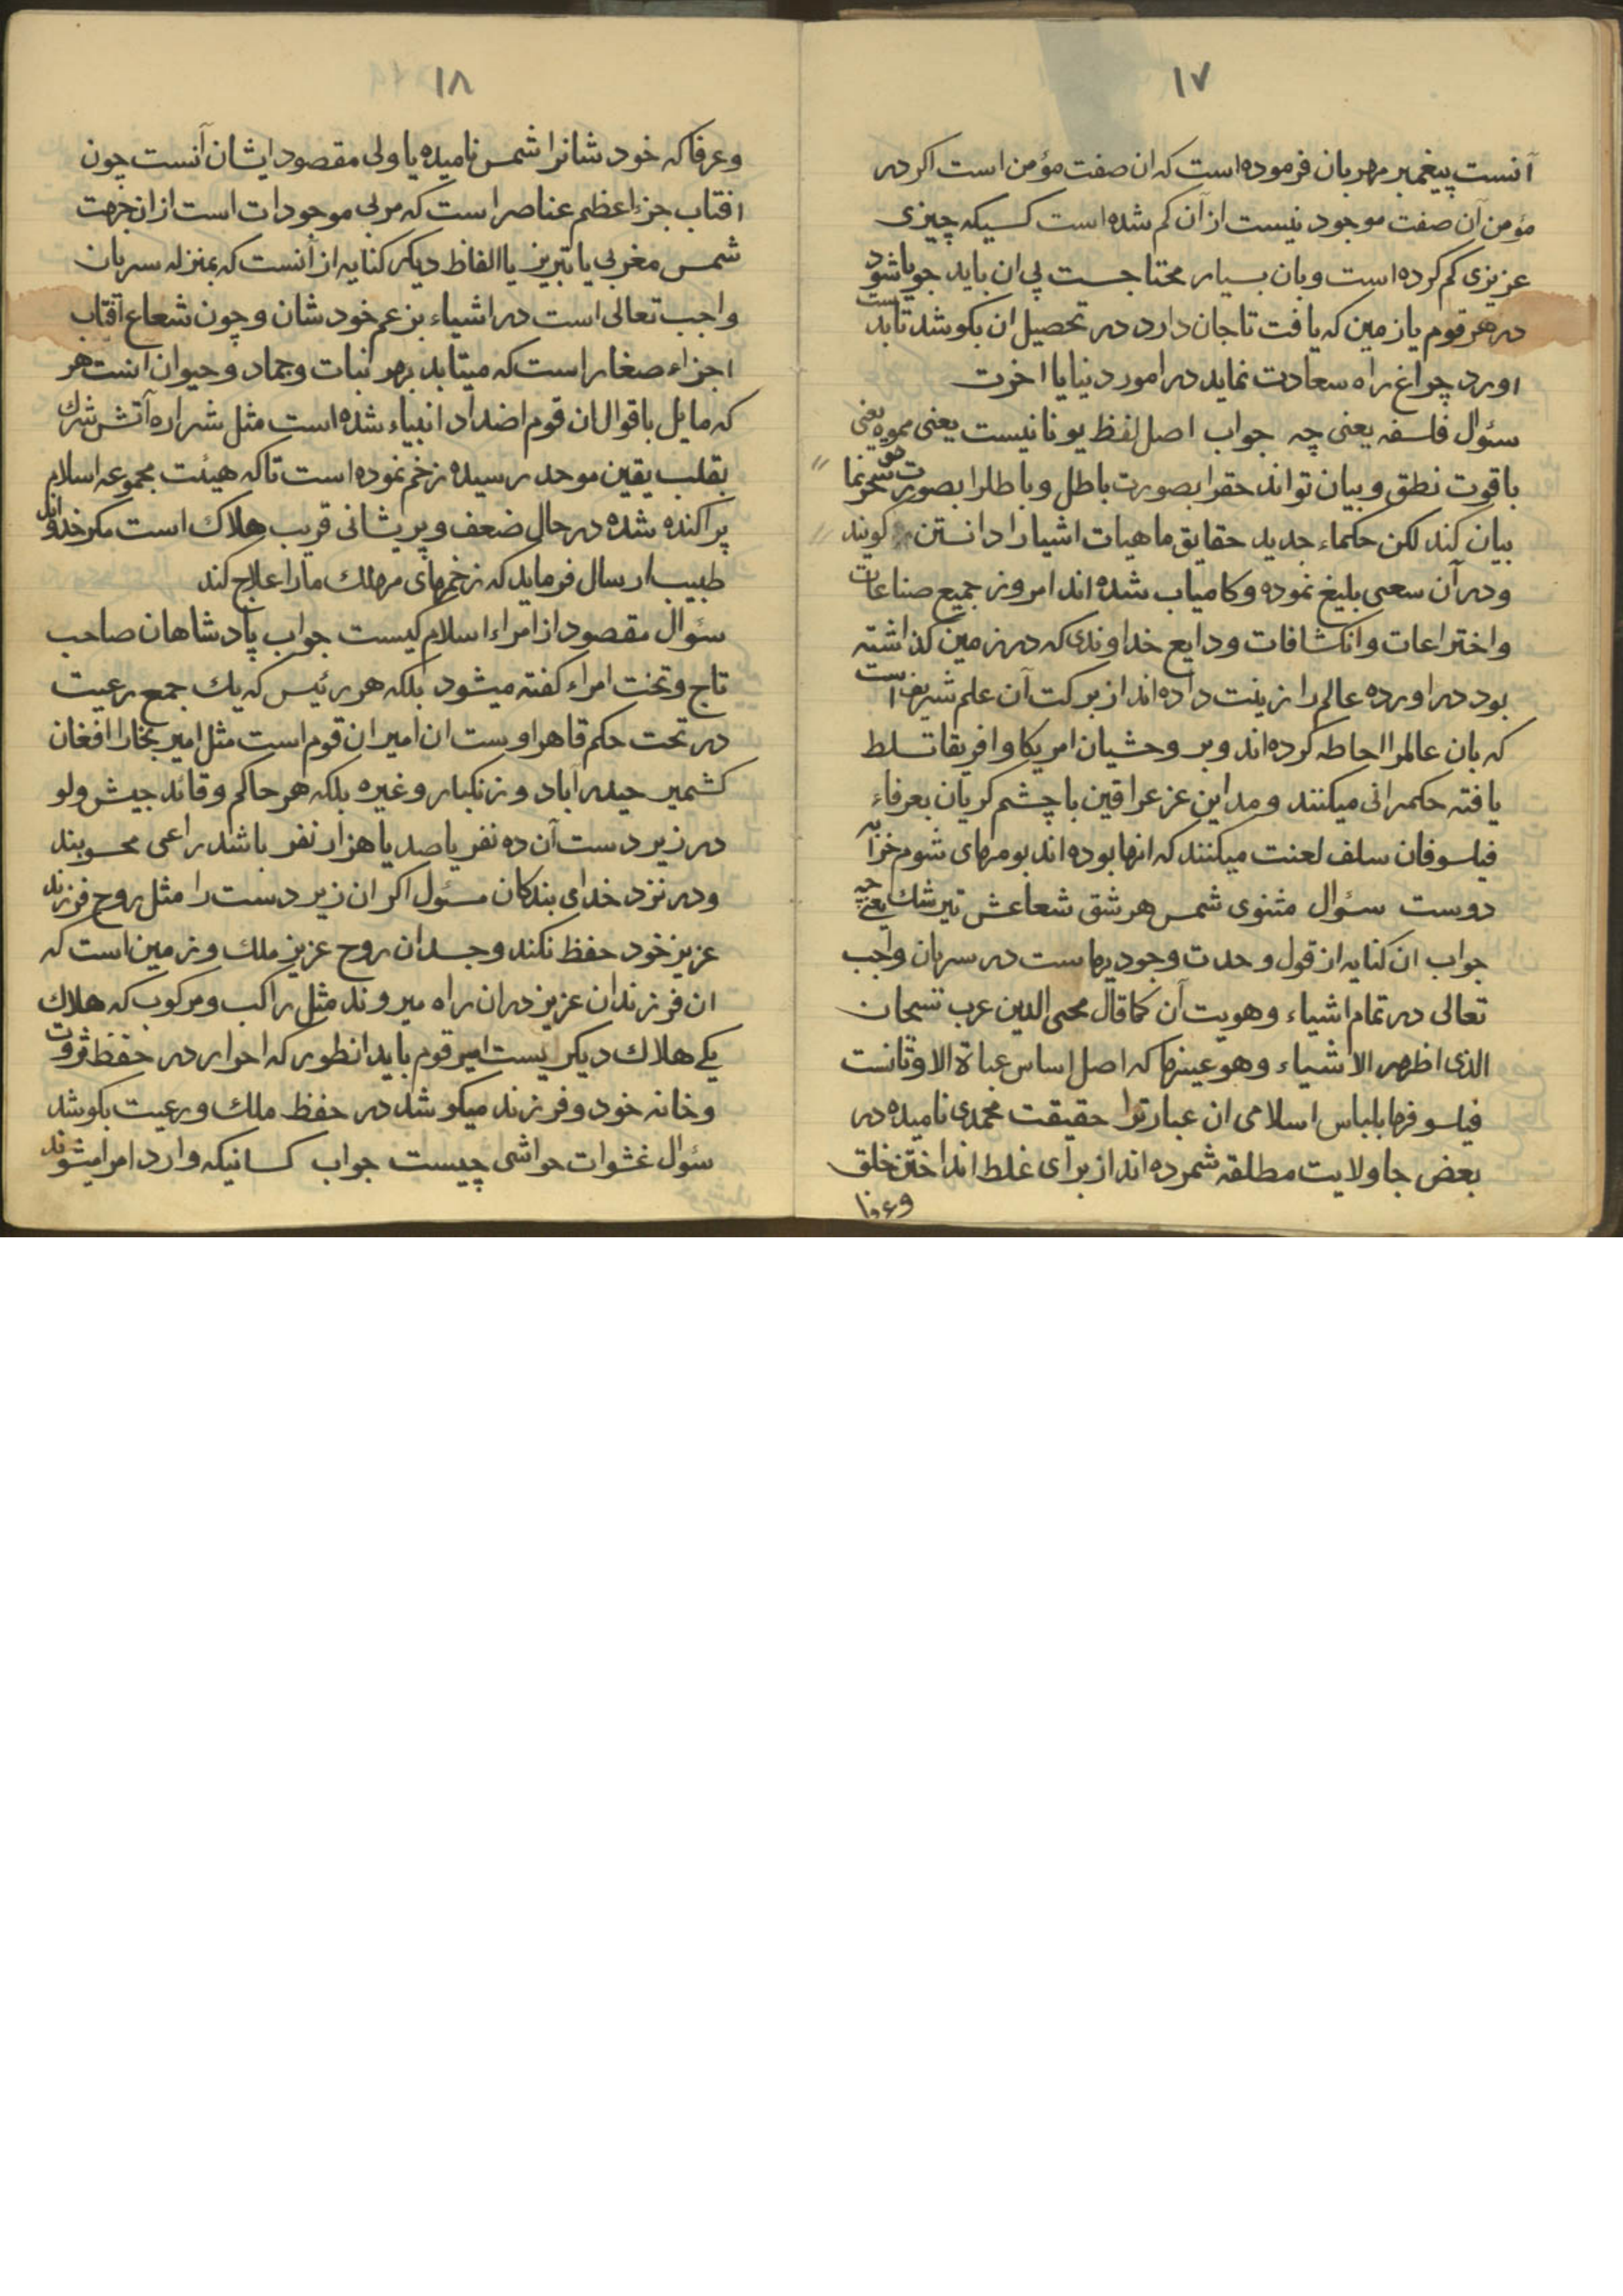 ۱۷
آنست پیغمبر مهربان فرموده است که ان صفت مؤمن است اکر در
مؤمن آن صفت موجود نیست از آن کم شده است کسیکه چیزی
عزیزی کم کرده است وبان بسیار محتاجست پی ان باید جویا شود
در هر قوم یا زمین که یافت تا جان دارد در تحصیل ان بکوشد تا بدست
اورد چراغ راه سعادت نماید در امور دنیا یا اخرت
سئوال فلسفه یعنی چه جواب اصل لفظ یونانیست یعنی مموه یعنی
باقوت نطق و بیان تواند حقرا بصورت باطل و باطلرا بصورت حق
بیان کند لکن حکماء جدید حقایق ماهیات اشیارا دانستن کویند
ودر آن سعی بلیغ نموده وکامیاب شده اند امروز جمیع صناعات
واختراعات وانکشافات ودایع خداوندی که در زمین کذاشته
بود در اورده عالم را زینت داده اند از برکت آن علم شریف است
که بان عالمرا احاطه کرده اند وبر وحشیان امریکا وافریقا تسلط
یافته حکمرانی میکنند ومداین عز عراقین با چشم کریان بعرفاء
فیلسوفان سلف لعنت میکنند که انها بوده اند بومهای شوم خرابه
دوست سئوال مثنوی شمس هر شق شعاعش تیر شك یعنی چه
جواب ان کنایه از قول وحدت وجودیهاست در سریان واجب
تعالی در تمام اشیاء وهویت آن کما قال محیی الدین عرب سبحان
الذی اظهر الاشیاء وهو عینها که اصل اساس عبادة الاوثانست
فیلسوفها بلباس اسلامی ان عبارترا حقیقت محمدی نامیده در
بعض جا ولایت مطلقه شمرده اند از برای غلط انداختن خلق
وعرفا
۱۸
وعرفا که خودشانرا شمس نامیده یا ولی مقصود ایشان آنست چون
افتاب جزء اعظم عناصر است که مربی موجودات است از ان جهت
شمس مغربی یا تبریز یا الفاظ دیکر کنایه از آنست که بمنزله سریان
واجب تعالی است در اشیاء بزعم خودشان وچون شعاع آفتاب
اجزاء صغار است که میتابد بهر نبات وجماد وحیوان انست هر
که مایل باقوال ان قوم اضداد انبیاء شده است مثل شراره آتش شرك
بقلب یقین موحد رسیده زخم نموده است تا که هیئت مجموعه اسلام
پراکنده شده در حال ضعف و پریشانی قریب هلاک است مکر خداوند
طبیب ارسال فرماید که زخمهای مهلك مارا علاج کند
سئوال مقصود از امراء اسلام کیست جواب پادشاهان صاحب
تاج وتخت امراء کفته میشود بلکه هر رئیس که یك جمع رعیت
در تحت حکم قاهر اوست ان امیر ان قوم است مثل امیر بخارا افغان
کشمیر حیدرآباد وزنکبار وغیره بلکه هر حاکم وقائد جیش ولو
در زیر دست آن ده نفر یا صد یا هزار نفر باشد راعی محسوبند
ودر نزد خدای بندکان مسئول اکر ان زیر دست را مثل روح فرزند
عزیز خود حفظ نکند وجسد ان روح عزیز ملك وزمین است که
ان فرزندان عزیز در ان راه میروند مثل راکب ومرکوب که هلاك
یکی هلاك دیکریست امیر قوم باید انطور که احوار در حفظ ثروت
وخانه خود وفرزند میکوشد در حفظ ملك ورعیت بکوشد
سئوال غشوات حواشی چیست جواب کسانیکه وارد امرا میشوند